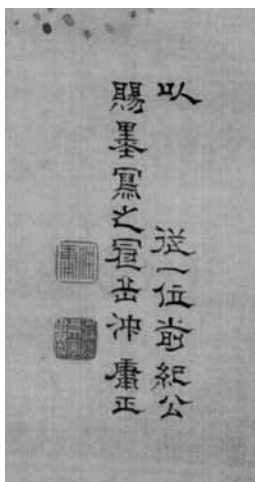 以　從一位前紀公
賜墨寫之冠岳沖庸正